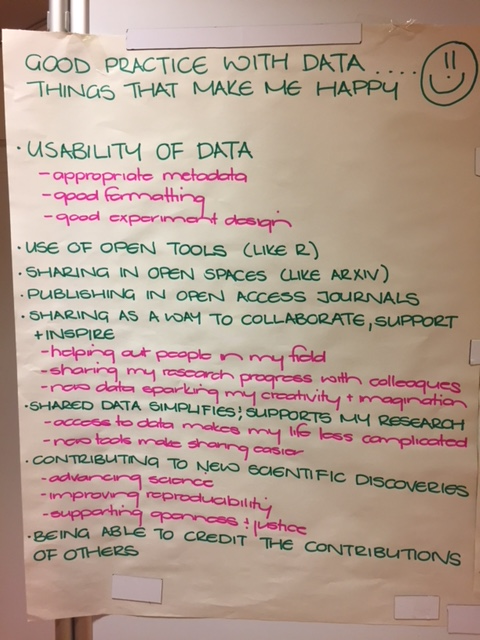 GOOD PRACTICE WITH DATA ....
THINGS THAT MAKE ME HAPPY
· USABILITY OF DATA
- appropriate metadata
- good formatting
- good experiment design
· USE OF OPEN TOOLS (LIKE R)
· SHARING IN OPEN SPACES (LIKE ARXIV)
· PUBLISHING IN OPEN ACCESS JOURNALS
· SHARING AS A WAY TO COLLABORATE, SUPPORT
+ INSPIRE
- helping out people in my field
- sharing my research progress with colleagues
- new data sparking my creativity + imagination
· SHARED DATA SIMPLIFIES + SUPPORTS MY RESEARCH
- access to data makes my life less complicated
- new tools make sharing easier
· CONTRIBUTING TO NEW SCIENTIFIC DISCOVERIES
- advancing science
- improving reproducability
- supporting openness + justice
· BEING ABLE TO CREDIT THE CONTRIBUTIONS
OF OTHERS